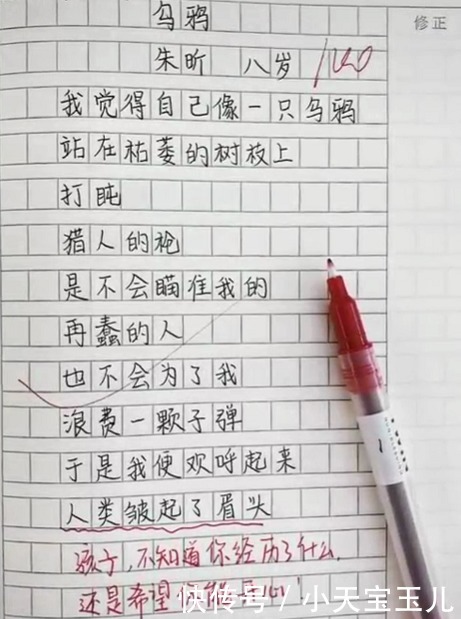 修正
乌鸦
朱昕 八岁 100
我觉得自己像一只乌鸦
站在枯萎的树枝上
打盹
猎人的枪
是不会瞄准我的
再蠢的人
也不会为了我
浪费一颗子弹
于是我便欢呼起来
人类皱起了眉头
孩子,不知道你经历了什么,
还是希望
快传号 / 小天宝玉儿